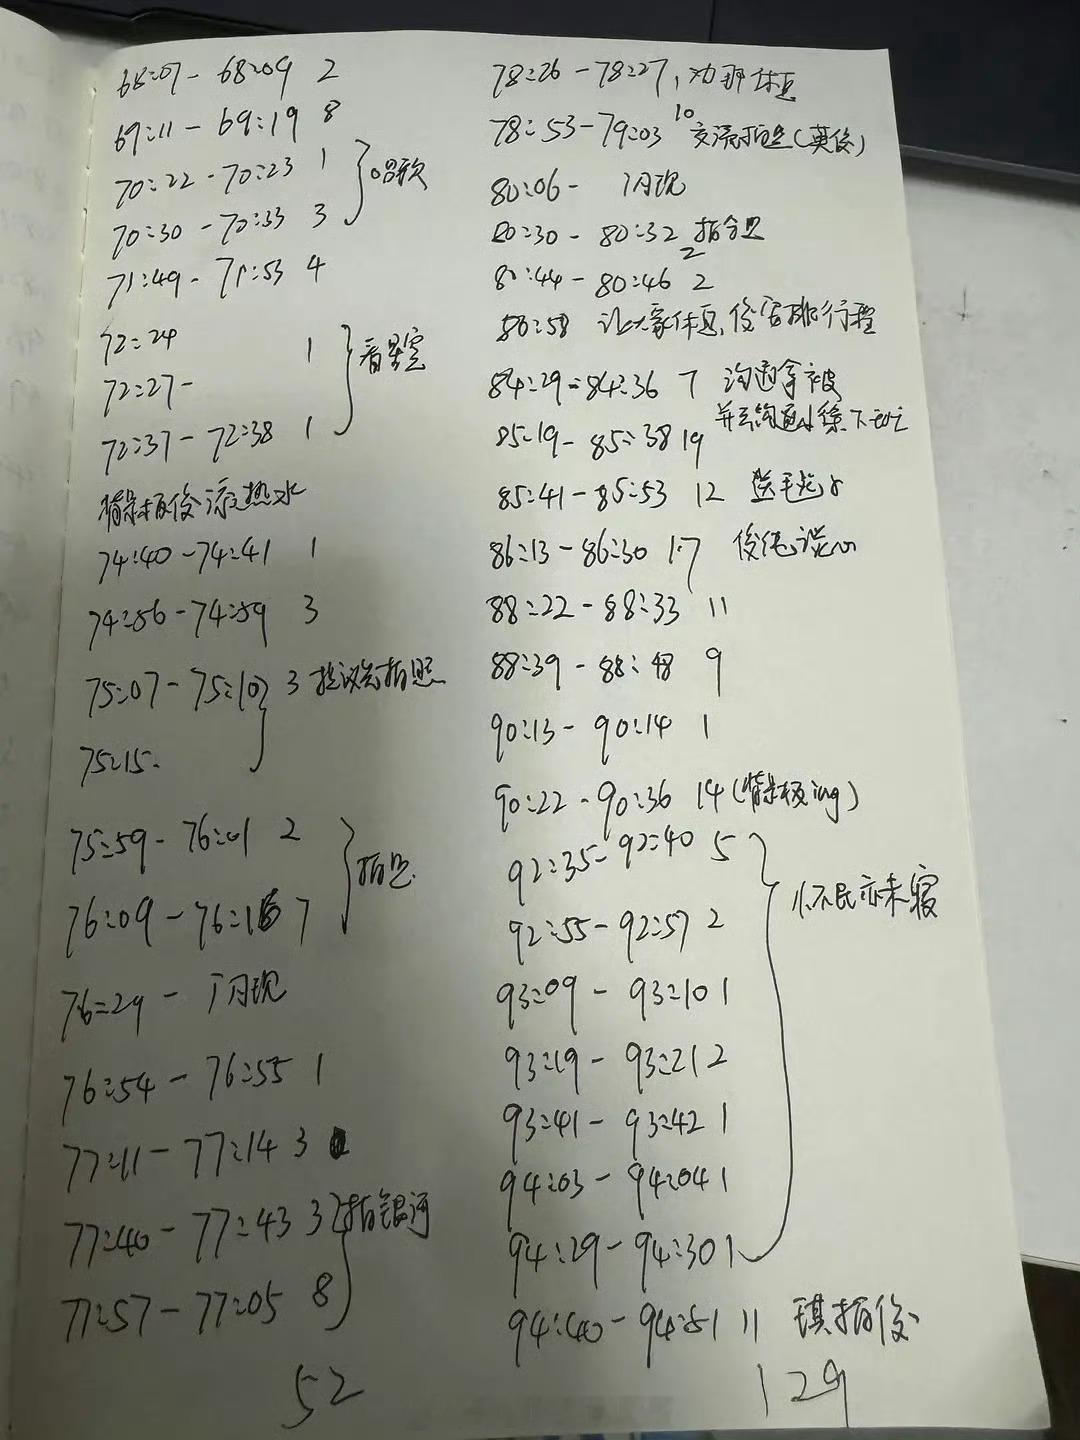 68:07 - 68:09 2
69:11 - 69:19 8
70:22 - 70:23 1
70:30 - 70:33 3
唱歌
71:49 - 71:53 4
72:24
1
72:27 -
看星空
72:37 - 72:38 1
俊 热水
74:40 - 74:41 1
74:56 - 74:59 3
75:07 - 75:10 3 提议去拍照
75:15.
75:59 - 76:01 2
76:09 - 76:16 7
拍照
76:29 - 1闪现
76:54 - 76:55 1
77:11 - 77:14 3
77:40 - 77:43 3 拍银河
77:57 - 77:05 8
52
78:26 - 78:27, 休息
78:53 - 79:03 10 交流拍照(英俊)
80:06 - 1闪现
80:30 - 80:32 2 拍合照
80:44 - 80:46 2
80:58 让大家休息,俊安排行程
84:29 - 84:36 7 沟通拿被
并去沟通
85:19 - 85:38 19
85:41 - 85:53 12 送毛毯
86:13 - 86:30 17 俊 谈心
88:22 - 88:33 11
88:39 - 88:48 9
90:13 - 90:14 1
90:22 - 90:36 14 (背景板ing)
92:35 - 92:40 5
92:55 - 92:57 2
小不民亦未寝
93:09 - 93:10 1
93:19 - 93:21 2
93:41 - 93:42 1
94:03 - 94:04 1
94:29 - 94:30 1
94:40 - 94:51 11 琪拍俊
129